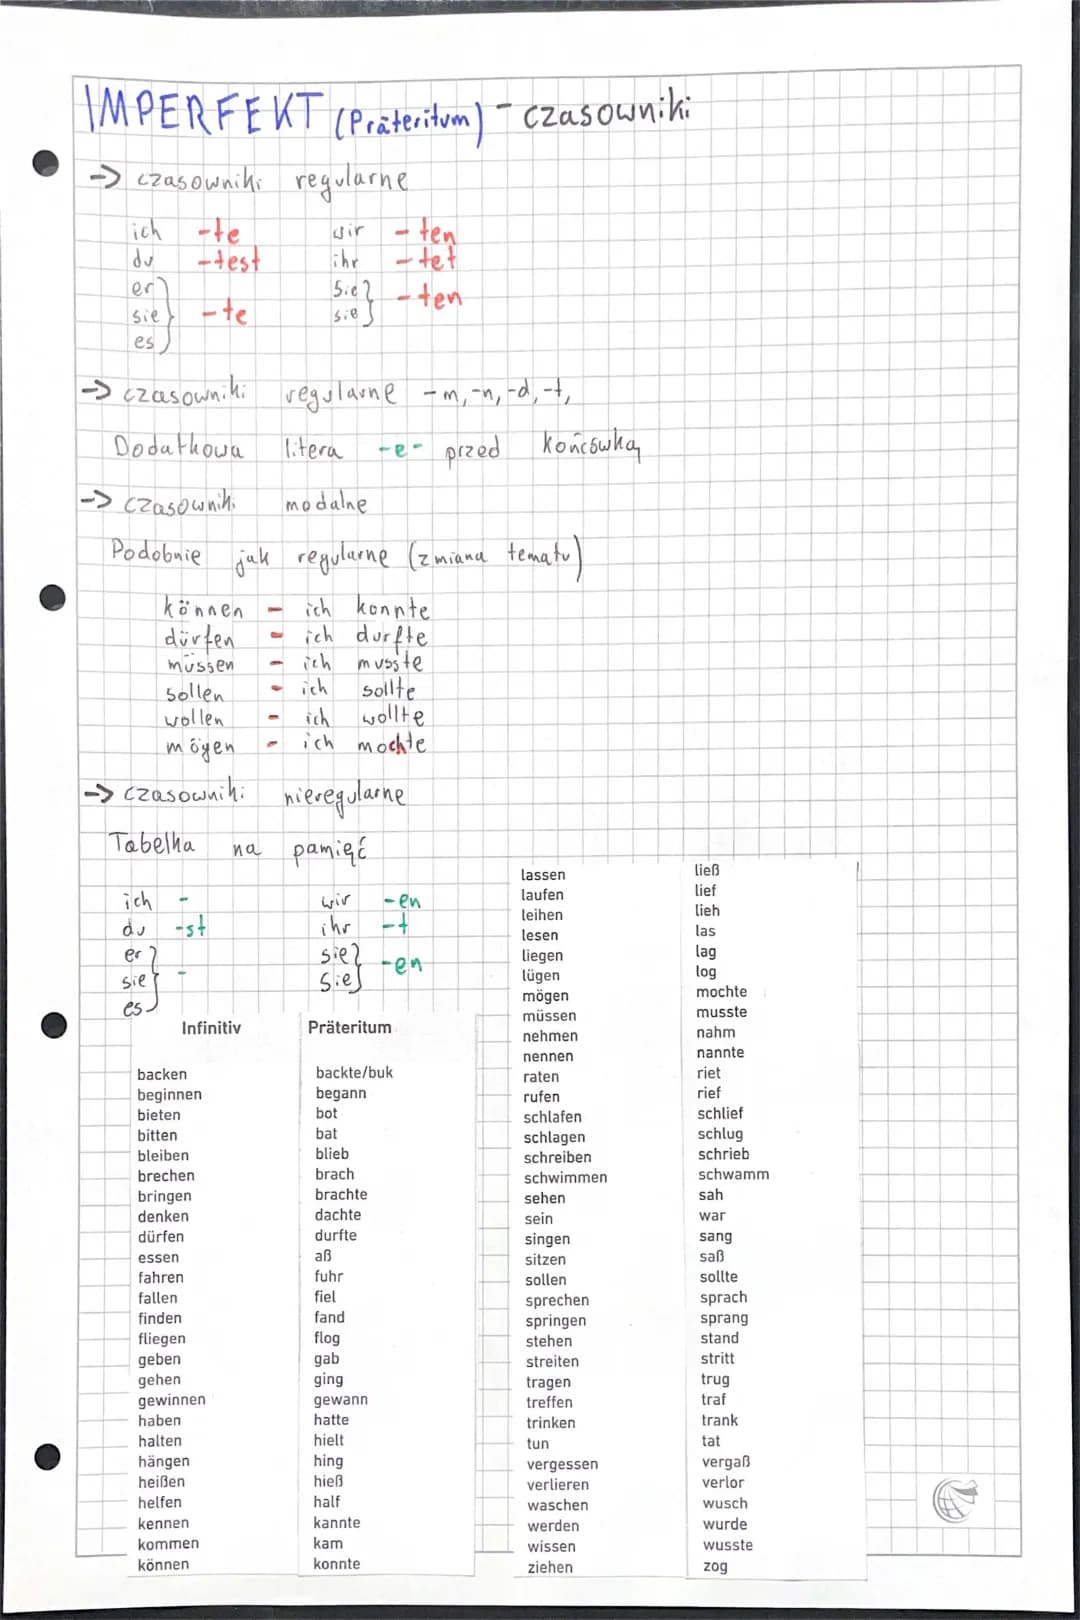 IMPERFEKT (Präteritum) - czasowniki
-> czasowniki regularne
ich -te wir -ten
du -test ihr -tet
er
sie -te
es
Sie
sie -ten
-> czasowniki regularne -m, -n, -d, -t,
Dodatkowa litera -e- przed końcówką
-> czasowniki modalne
Podobnie jak regularne (zmiana tematu)
können - ich konnte
dürfen - ich durfte
müssen - ich musste
sollen - ich sollte
wollen - ich wollte
mögen - ich mochte
-> czasowniki nieregularne
Tabelka na pamięć
ich - wir -en
du -st ihr -t
er
sie -
es
sie
Sie -en
Infinitiv Präteritum
backen backte/buk
beginnen begann
bieten bot
bitten bat
bleiben blieb
brechen brach
bringen brachte
denken dachte
dürfen durfte
essen aß
fahren fuhr
fallen fiel
finden fand
fliegen flog
geben gab
gehen ging
gewinnen gewann
haben hatte
halten hielt
hängen hing
heißen hieß
helfen half
kennen kannte
kommen kam
können konnte
lassen ließ
laufen lief
leihen lieh
lesen las
liegen lag
lügen log
mögen mochte
müssen musste
nehmen nahm
nennen nannte
raten riet
rufen rief
schlafen schlief
schlagen schlug
schreiben schrieb
schwimmen schwamm
sehen sah
sein war
singen sang
sitzen saß
sollen sollte
sprechen sprach
springen sprang
stehen stand
streiten stritt
tragen trug
treffen traf
trinken trank
tun tat
vergessen vergaß
verlieren verlor
waschen wusch
werden wurde
wissen wusste
ziehen zog